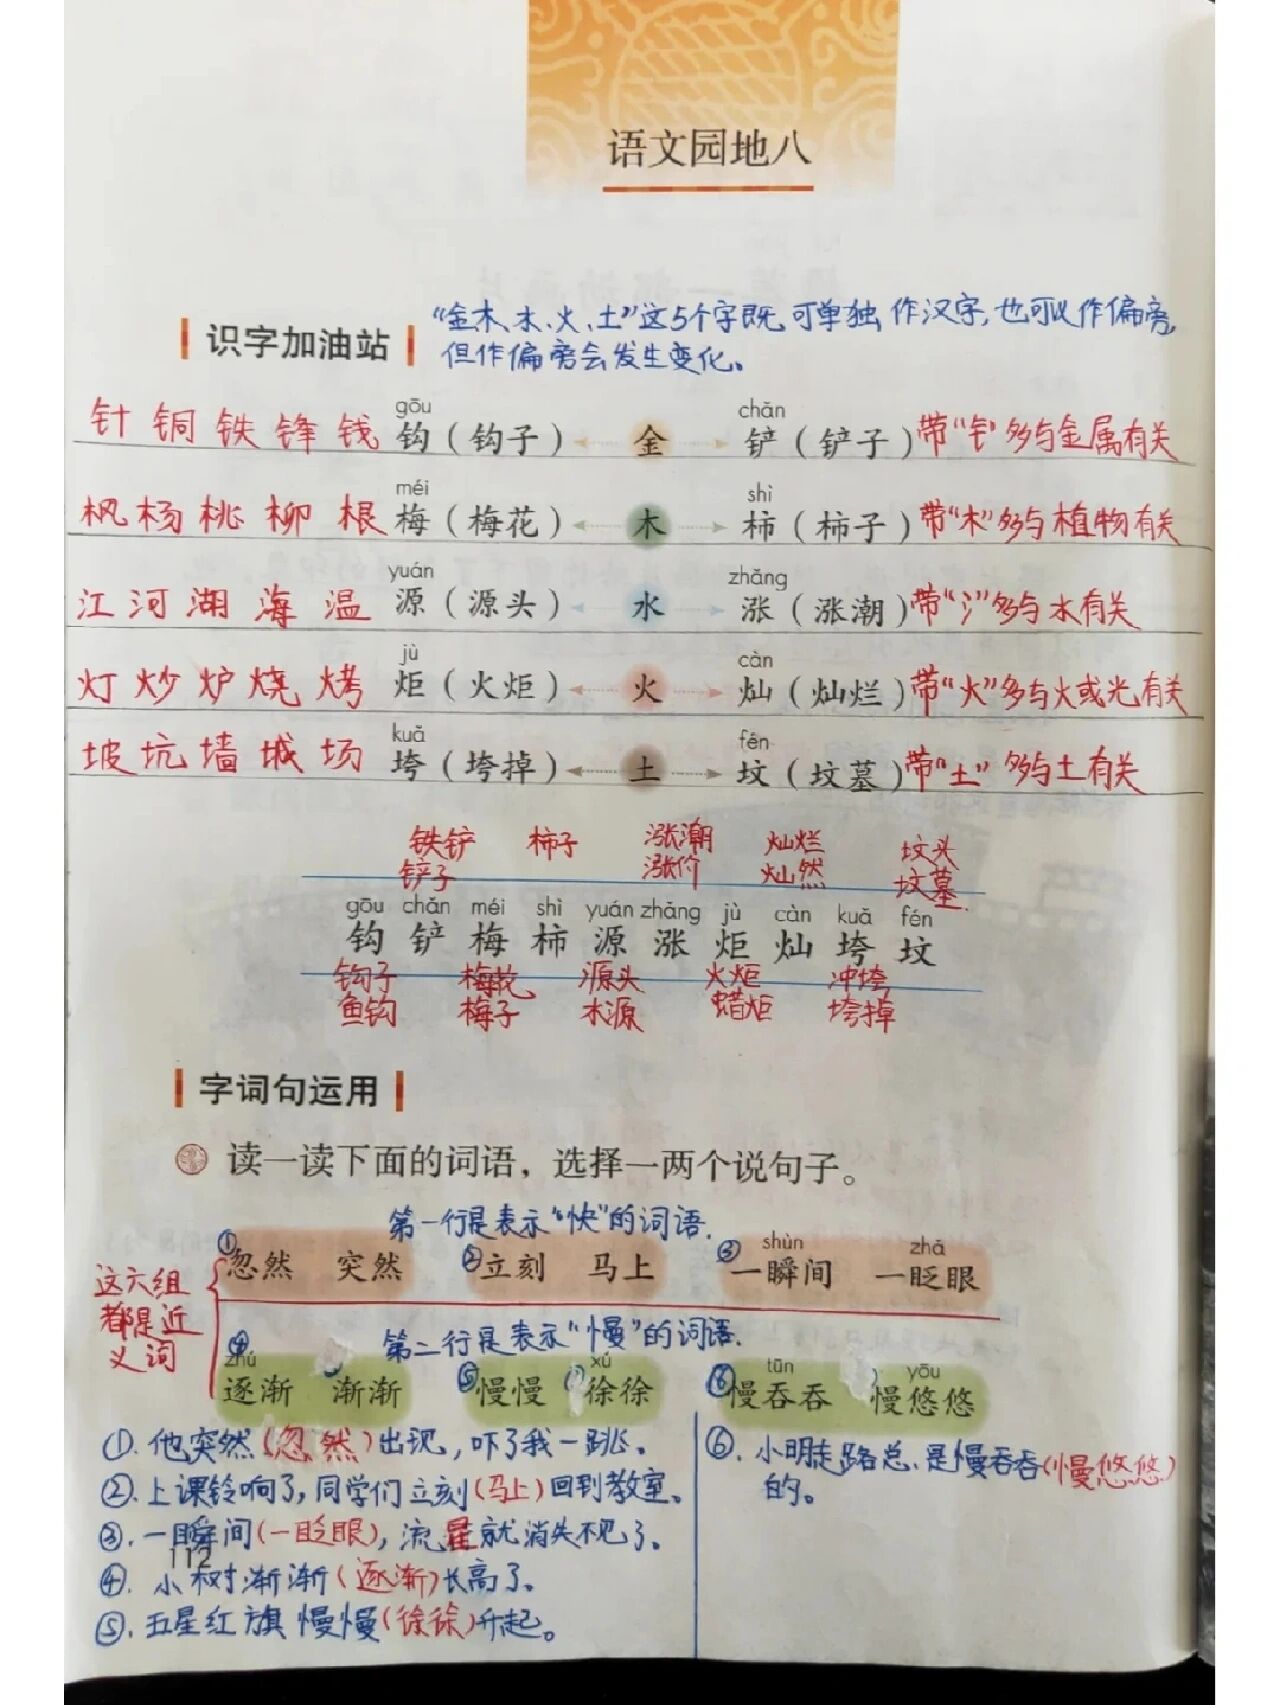 语文园地八
“金、木、水、火、土”这5个字既可单独作汉字,也可以作偏旁,
识字加油站
但作偏旁会发生变化。
gōu chǎn
针 铜 铁 锋 钱 钩（钩子） 金 铲（铲子） 带“钅”多与金属有关
méi shì
枫 杨 桃 柳 根 梅（梅花） 木 柿（柿子） 带“木”多与植物有关
yuán zhǎng
江 河 湖 海 温 源（源头） 水 涨（涨潮） 带“氵”多与水有关
jù càn
灯 炒 炉 烧 烤 炬（火炬） 火 灿（灿烂） 带“火”多与火或光有关
kuǎ fén
坡 坑 墙 城 场 垮（垮掉） 土 坟（坟墓） 带“土”多与土有关
铁铲 柿子 涨潮 灿烂 坟头
铲子 涨价 灿然 坟墓
gōu chǎn méi shì yuán zhǎng jù càn kuǎ fén
钩 铲 梅 柿 源 涨 炬 灿 垮 坟
钩子 梅花 源头 火炬 冲垮
鱼钩 梅子 水源 蜡炬 垮掉
字词句运用
读一读下面的词语，选择一两个说句子。
第一行是表示“快”的词语.
shùn zhǎ
①忽然 突然 ②立刻 马上 ③一瞬间 一眨眼
这六组
都是近
义词
第二行是表示“慢”的词语.
zhú xú tūn yōu
④逐渐 渐渐 ⑤慢慢 徐徐 ⑥慢吞吞 慢悠悠
①.他突然(忽然)出现,吓了我一跳。
②.上课铃响了,同学们立刻(马上)回到教室。
③.一瞬间(一眨眼),流星就消失不见了。
112
④.小树渐渐(逐渐)长高了。
⑤.五星红旗慢慢(徐徐)升起。
⑥.小明走路总是慢吞吞(慢悠悠)
的。